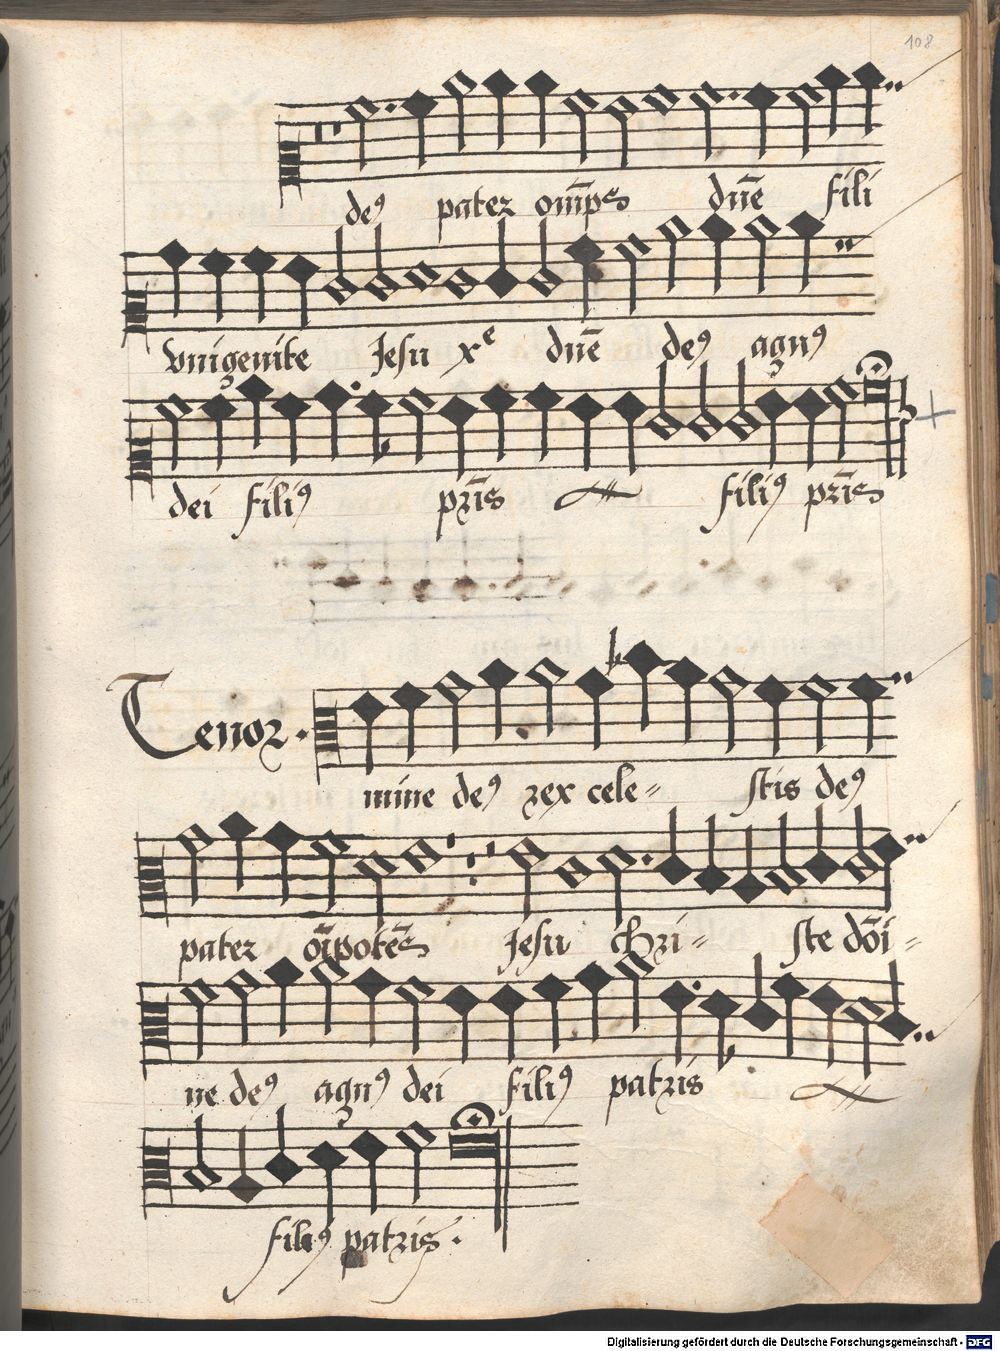 108
de9 pater om̅p̅s dn̅e fili
vnigenite Jesu xe dn̅e de9 agn9
dei fili9 pr̅is fili9 pr̅is
Tenor.
mine de9 rex cele- stis de9
pater oi̅pote̅s Jesu chri- ste do̅i-
ne de9 agn9 dei fili9 patris
fili9 patris.
Digitalisierung gefördert durch die Deutsche Forschungsgemeinschaft - DFG